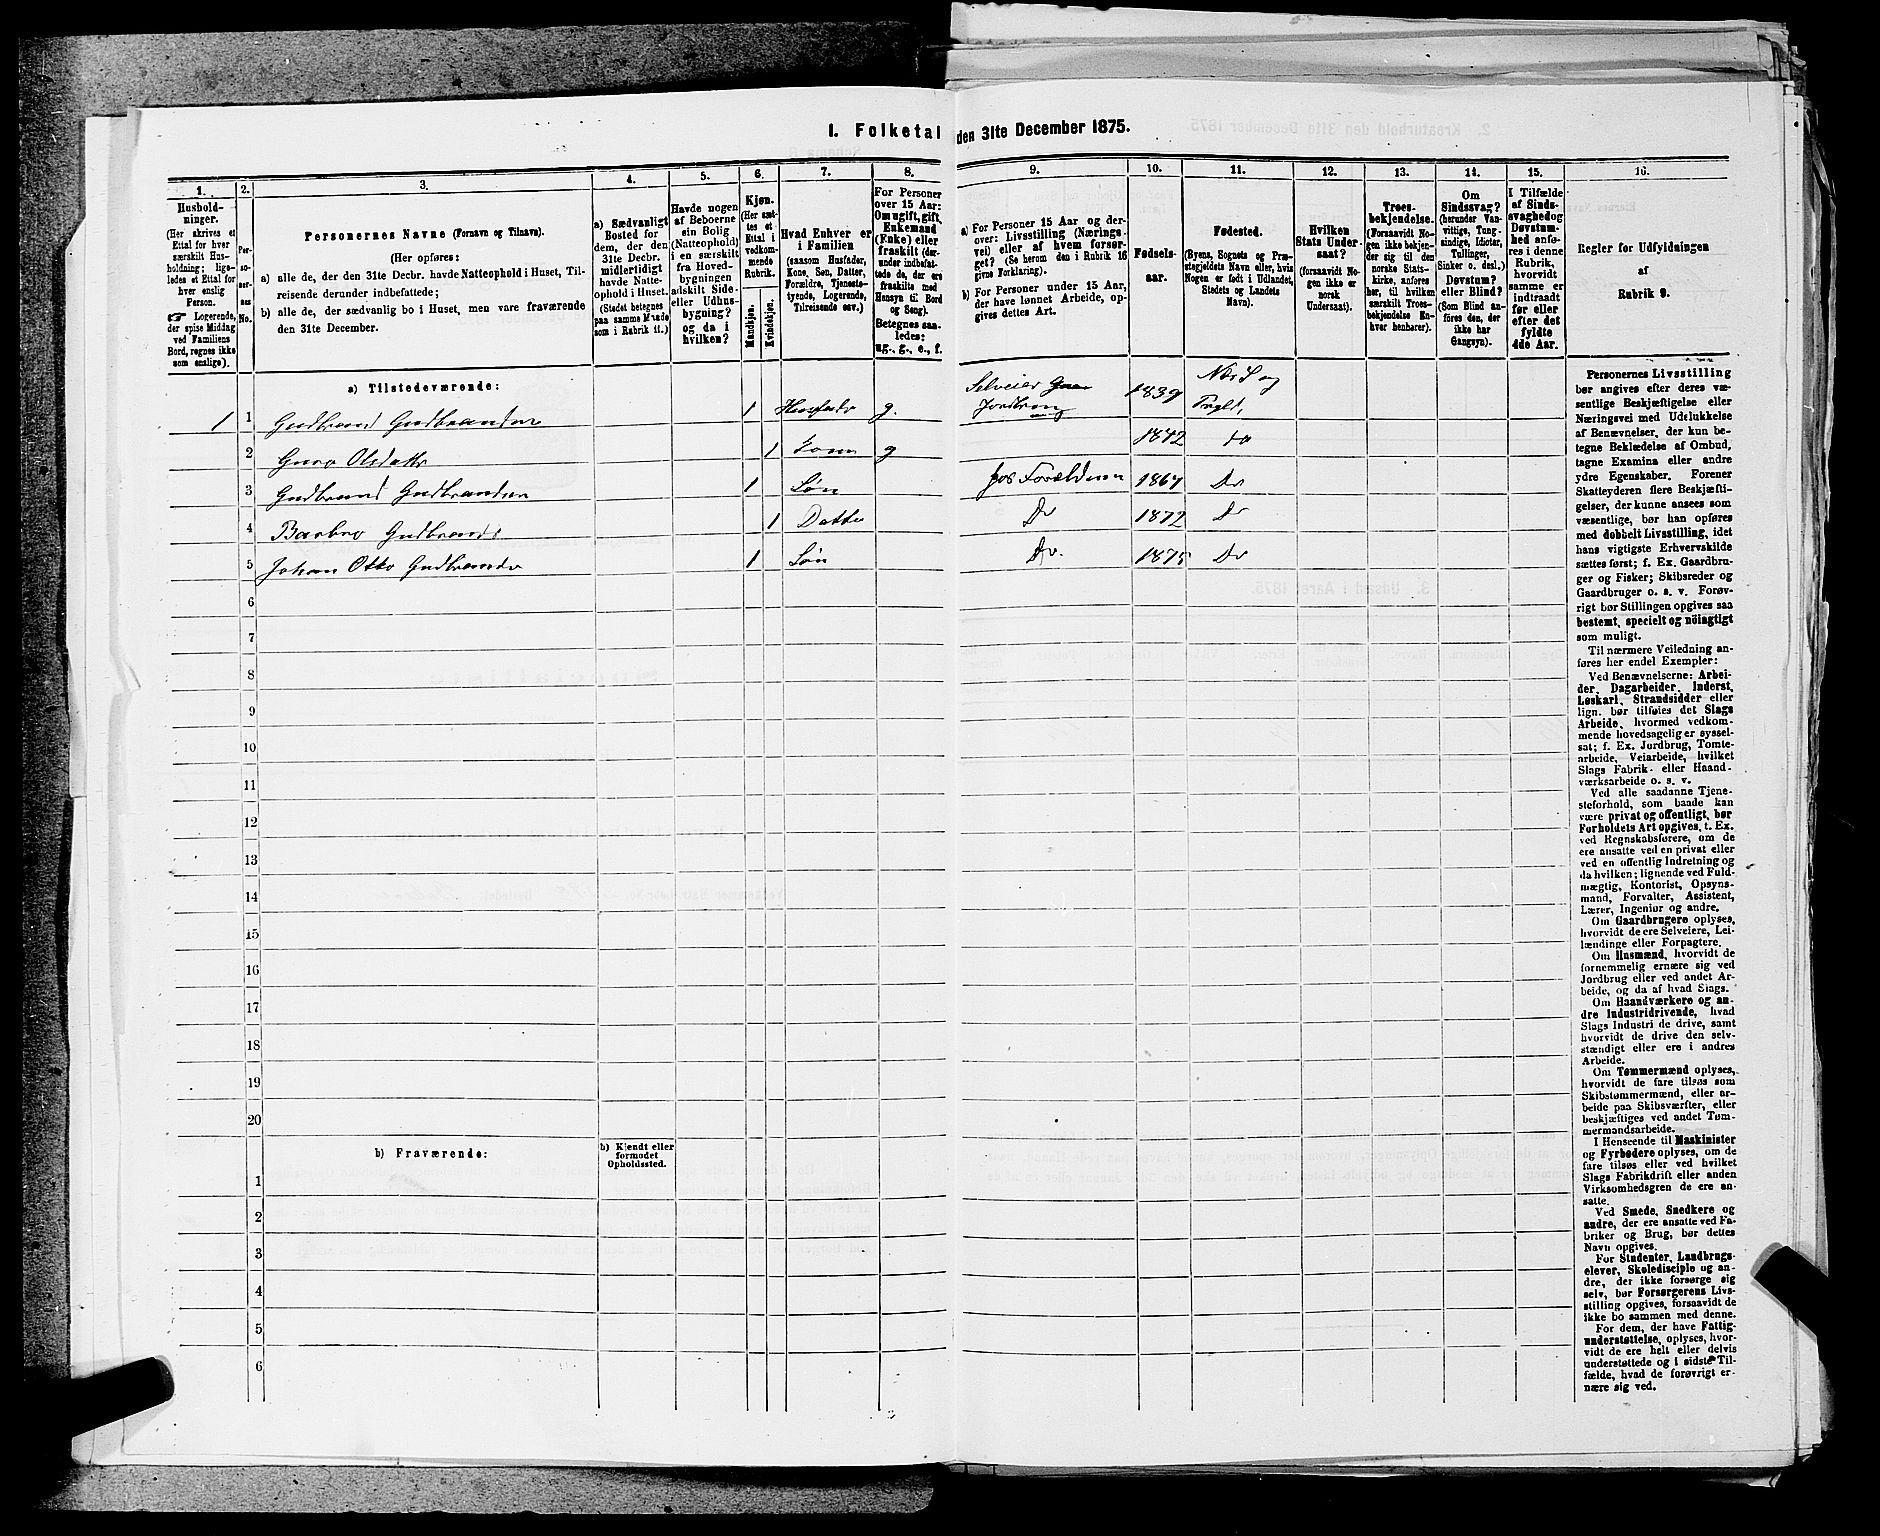 1. Folketal den 31te December 1875.
1.
2.
3.
4.
5.
6.
7.
8.
9.
10.
11.
12.
13.
14.
15.
16.
Hushold-
ninger.
(Her skrives et
Ettal for hver
særskilt Hus-
holdning; lige-
ledes et Ettal for
hver enslig
Person.
☛ Logerende,
der spise Middag
ved Familiens
Bord, regnes ikke
som enslige).
Per-
so-
ner-
nes
No.
Personernes Navne (Fornavn og Tilnavn).
(Her opføres:
a) alle de, der den 31te Decbr. havde Natteophold i Huset, Til-
reisende derunder indbefattede;
b) alle de, der sædvanlig bo i Huset, men vare fraværende
den 31te December.
a) Sædvanligt
Bosted for
dem, der den
31te Decbr.
midlertidigt
havde Natte-
ophold i Huset.
(Stedet betegnes
paa samme Maade
som i Rubrik 11.)
Havde nogen
af Beboerne
sin Bolig
(Natteophold)
i en særskilt
fra Hoved-
bygningen
adskilt Side-
eller Udhus-
bygning?
og da i
hvilken?
Kjøn.
(Her sæt-
tes et
Ettal i
vedkom-
mende
Rubrik.
Mandkjøn.
Kvindekjøn.
Hvad Enhver er
i Familien
(saasom Husfader,
Kone, Søn, Datter,
Forældre, Tjeneste-
tyende, Logerende,
Tilreisende osv.)
For Personer
over 15 Aar:
Om ugift, gift,
Enkemand
(Enke) eller
fraskilt (der-
under indbefat-
tede de, der ere
fraskilte med
Hensyn til Bord
og Seng).
Betegnes saa-
ledes:
ug., g., e., f.
a) For Personer 15 Aar og der-
over: Livsstilling (Nærings-
vei) eller af hvem forsør-
get? (Se herom den i Rubrik 16
givne Forklaring).
b) For Personer under 15 Aar,
der have lønnet Arbeide, op-
gives dettes Art.
Fødsels-
aar.
Fødested.
(Byens, Sognets og Præ-
stegjeldets Navn eller, hvis
Nogen er født i Udlandet,
Stedets og Landets
Navn).
Hvilken
Stats Under-
saat?
(forsaavidt No-
gen ikke er
norsk
Undersaat).
Troes-
bekjendelse.
(Forsaavidt No-
gen ikke bekjen-
der sig til den
norske Stats-
kirke, anføres
her, til hvilken
særskilt Troes-
bekjendelse En-
hver henhører).
Om
Sindssvag?
(herunder Van-
vittige, Tung-
sindige, Idioter,
Tullinger,
Sinker o. desl.)
Døvstum?
eller Blind?
(Som Blind an-
føres den, der
ikke har
Gangsyn).
I Tilfælde
af Sinds-
svaghed og
Døvstum-
hed anfø-
res i denne
Rubrik,
hvorvidt
samme er
indtraadt
før eller
efter det
fyldte
4de Aar.
Regler for Udfyldningen
af
Rubrik 9.
a) Tilstedeværende:
1 1 Gudbrand Gudbrandsen 1 Husfader g. Selveier Jordbrug 1839
2 Guro Olsdatter 1 Kone g 1842 do
3 Gudbrand Gudbrandsen 1 Søn hos Forældrene 1867 Do
4 Barbro Gudbrands 1 Datter Do 1872 Do
5 Johan Otto Gudbrands 1 Søn Do. 1875 Do
6
7
8
9
10
11
12
13
14
15
16
17
18
19
20
b) Fraværende:
b) Kjendt eller
formodet
Opholdssted.
1
2
3
4
5
6
Personernes Livsstilling
bør angives efter deres væ-
sentlige Beskjæftigelse eller
Næringsvei med Udelukkelse
af Benævnelser, der kun be-
tegne Beklædelse af Ombud,
tagne Examina eller andre
ydre Egenskaber. Forener
Skatteyderen flere Beskjæfti-
gelser, der kunne ansees som
væsentlige, bør han opføres
med dobbelt Livsstilling, idet
hans vigtigste Erhvervskilde
sættes først; f. Ex. Gaardbru-
ger og Fisker; Skibsreder og
Gaardbruger o. s. v. Forøv-
rigt bør Stillingen opgives saa
bestemt, specielt og nöiagtigt
som muligt.
Til nærmere Veiledning an-
føres her endel Exempler:
Ved Benævnelserne: Arbei-
der, Dagarbeider, Inderst,
Løskarl, Strandsidder eller
lign. bør tilføies det Slags
Arbeide, hvormed vedkom-
mende hovedsagelig er syssel-
sat; f. Ex. Jordbrug, Tomte-
arbeide, Veiarbeide, hvilket
Slags Fabrik- eller Haand-
værksarbeide o. s. v.
Ved alle saadanne Tjene-
steforhold, som baade kan
være privat og offentligt, bør
Forholdets Art opgives, t. Ex.
ved Regnskabsførere, om de
ere ansatte ved en privat eller
ved en offentlig Indretning og
da hvilken; lignende ved Fuld-
mægtig, Kontorist, Opsyns-
mand, Forvalter, Assistent,
Lærer, Ingeniør og andre.
Om Gaardbrugere oplyses,
hvorvidt de ere Selveiere, Lei-
lændinge eller Forpagtere.
Om Husmænd, hvorvidt de
fornemmelig ernære sig ved
Jordbrug eller ved andet Ar-
beide, og da af hvad Slags.
Om Haandværkere og an-
dre Industridrivende, hvad
Slags Industri de drive, samt
hvorvidt de drive den selv-
stændigt eller ere i andres
Arbeide.
Om Tømmermænd oplyses,
hvorvidt de fare tilsøs som
Skibstømmermænd, eller ar-
beide paa Skibsværfter, eller
beskjæftiges ved andet Tøm-
mermandsarbeide.
I Henseende til Maskinister
og Fyrbødere oplyses, om de
fare tilsøs eller ved hvilket
Slags Fabrikdrift eller anden
Virksomhedsgren de ere an-
satte.
Ved Smede, Snedkere og
andre, der ere ansatte ved Fa-
briker og Brug, bør dettes
Navn opgives.
For Studenter, Landbrugs-
elever, Skoledisciple og an-
dre, der ikke forsørge sig
selv, bør Forsørgerens Livs-
stilling opgives, forsaavidt de
ikke bo sammen med denne.
For dem, der have Fattig-
understøttelse, oplyses, hvor-
vidt de ere helt eller delvis
understøttede og i sidste Til-
fælde, hvad de forøvrigt er-
nære sig ved.